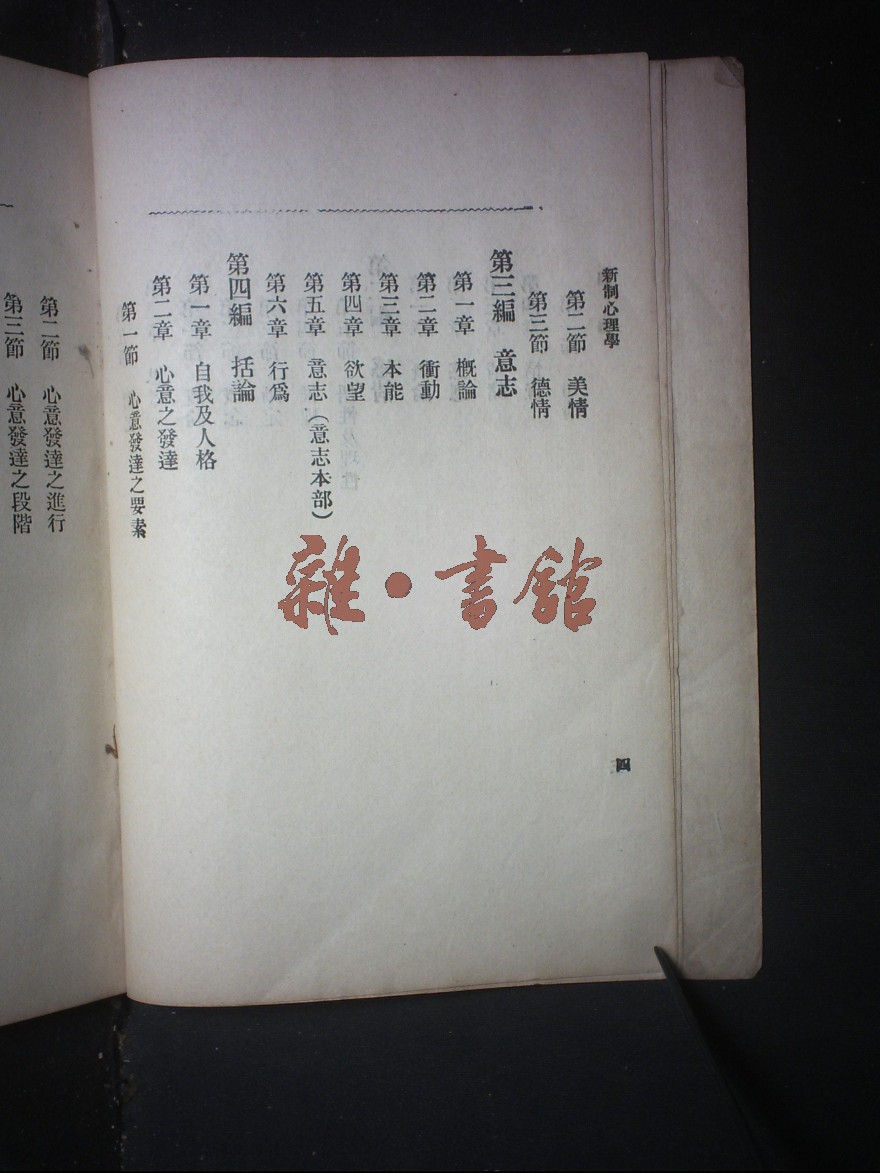 新制心理學
第二節 美情
第三節 德情
第三編 意志
第一章 概論
第二章 衝動
第三章 本能
第四章 欲望
第五章 意志(意志本部)
第六章 行爲
第四編 括論
第一章 自我及人格
第二章 心意之發達
第一節 心意發達之要素
四
第二節 心意發達之進行
第三節 心意發達之段階
雜·書館